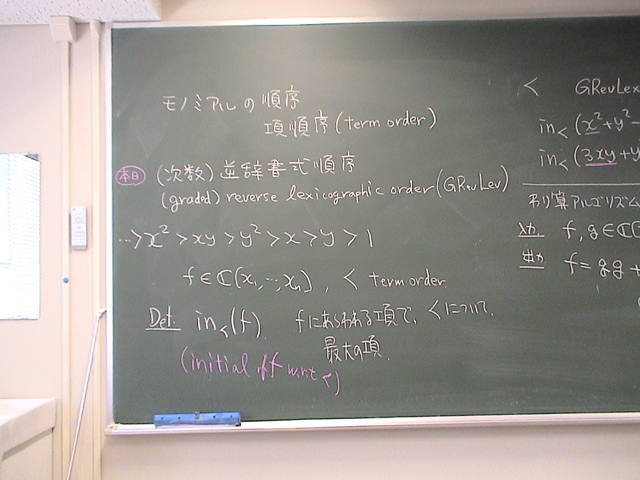 モノミアルの順序
項順序(term order)
本日 (次数)逆辞書式順序
(graded) reverse lexicographic order(GRevLex)
…>x²>xy>y²>x>y>1
f∈ℂ[x₁,…,xₙ], < term order.
Def. in<(f) fにあらわれる項で、<について、
最大の項.
(initial of f w.r.t <)
< GRevLex
in<(x²+y²-
in<(3xy+y
わり算アルゴリズム
入力 f, g∈ℂ[
出力 f=qg+